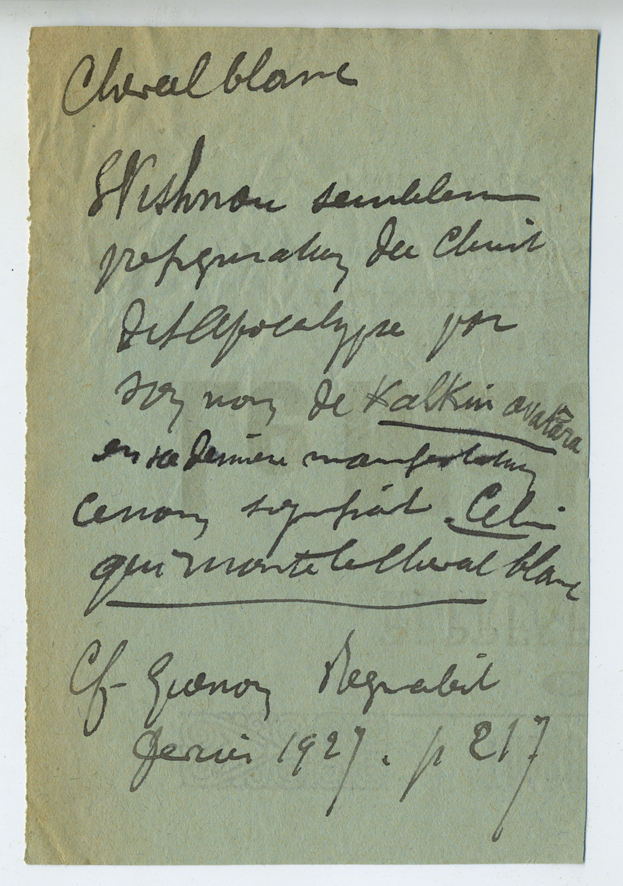 Cheval blanc
Vishnou semblem
prefiguration du Christ
de l'Apocalypse par
son nom de Kalkin avatâra
en sa derniere manifestation
ce nom signifiait Celui
qui monte le Cheval blanc
Cf Guenon Regnabit
fevrier 1927. p 217